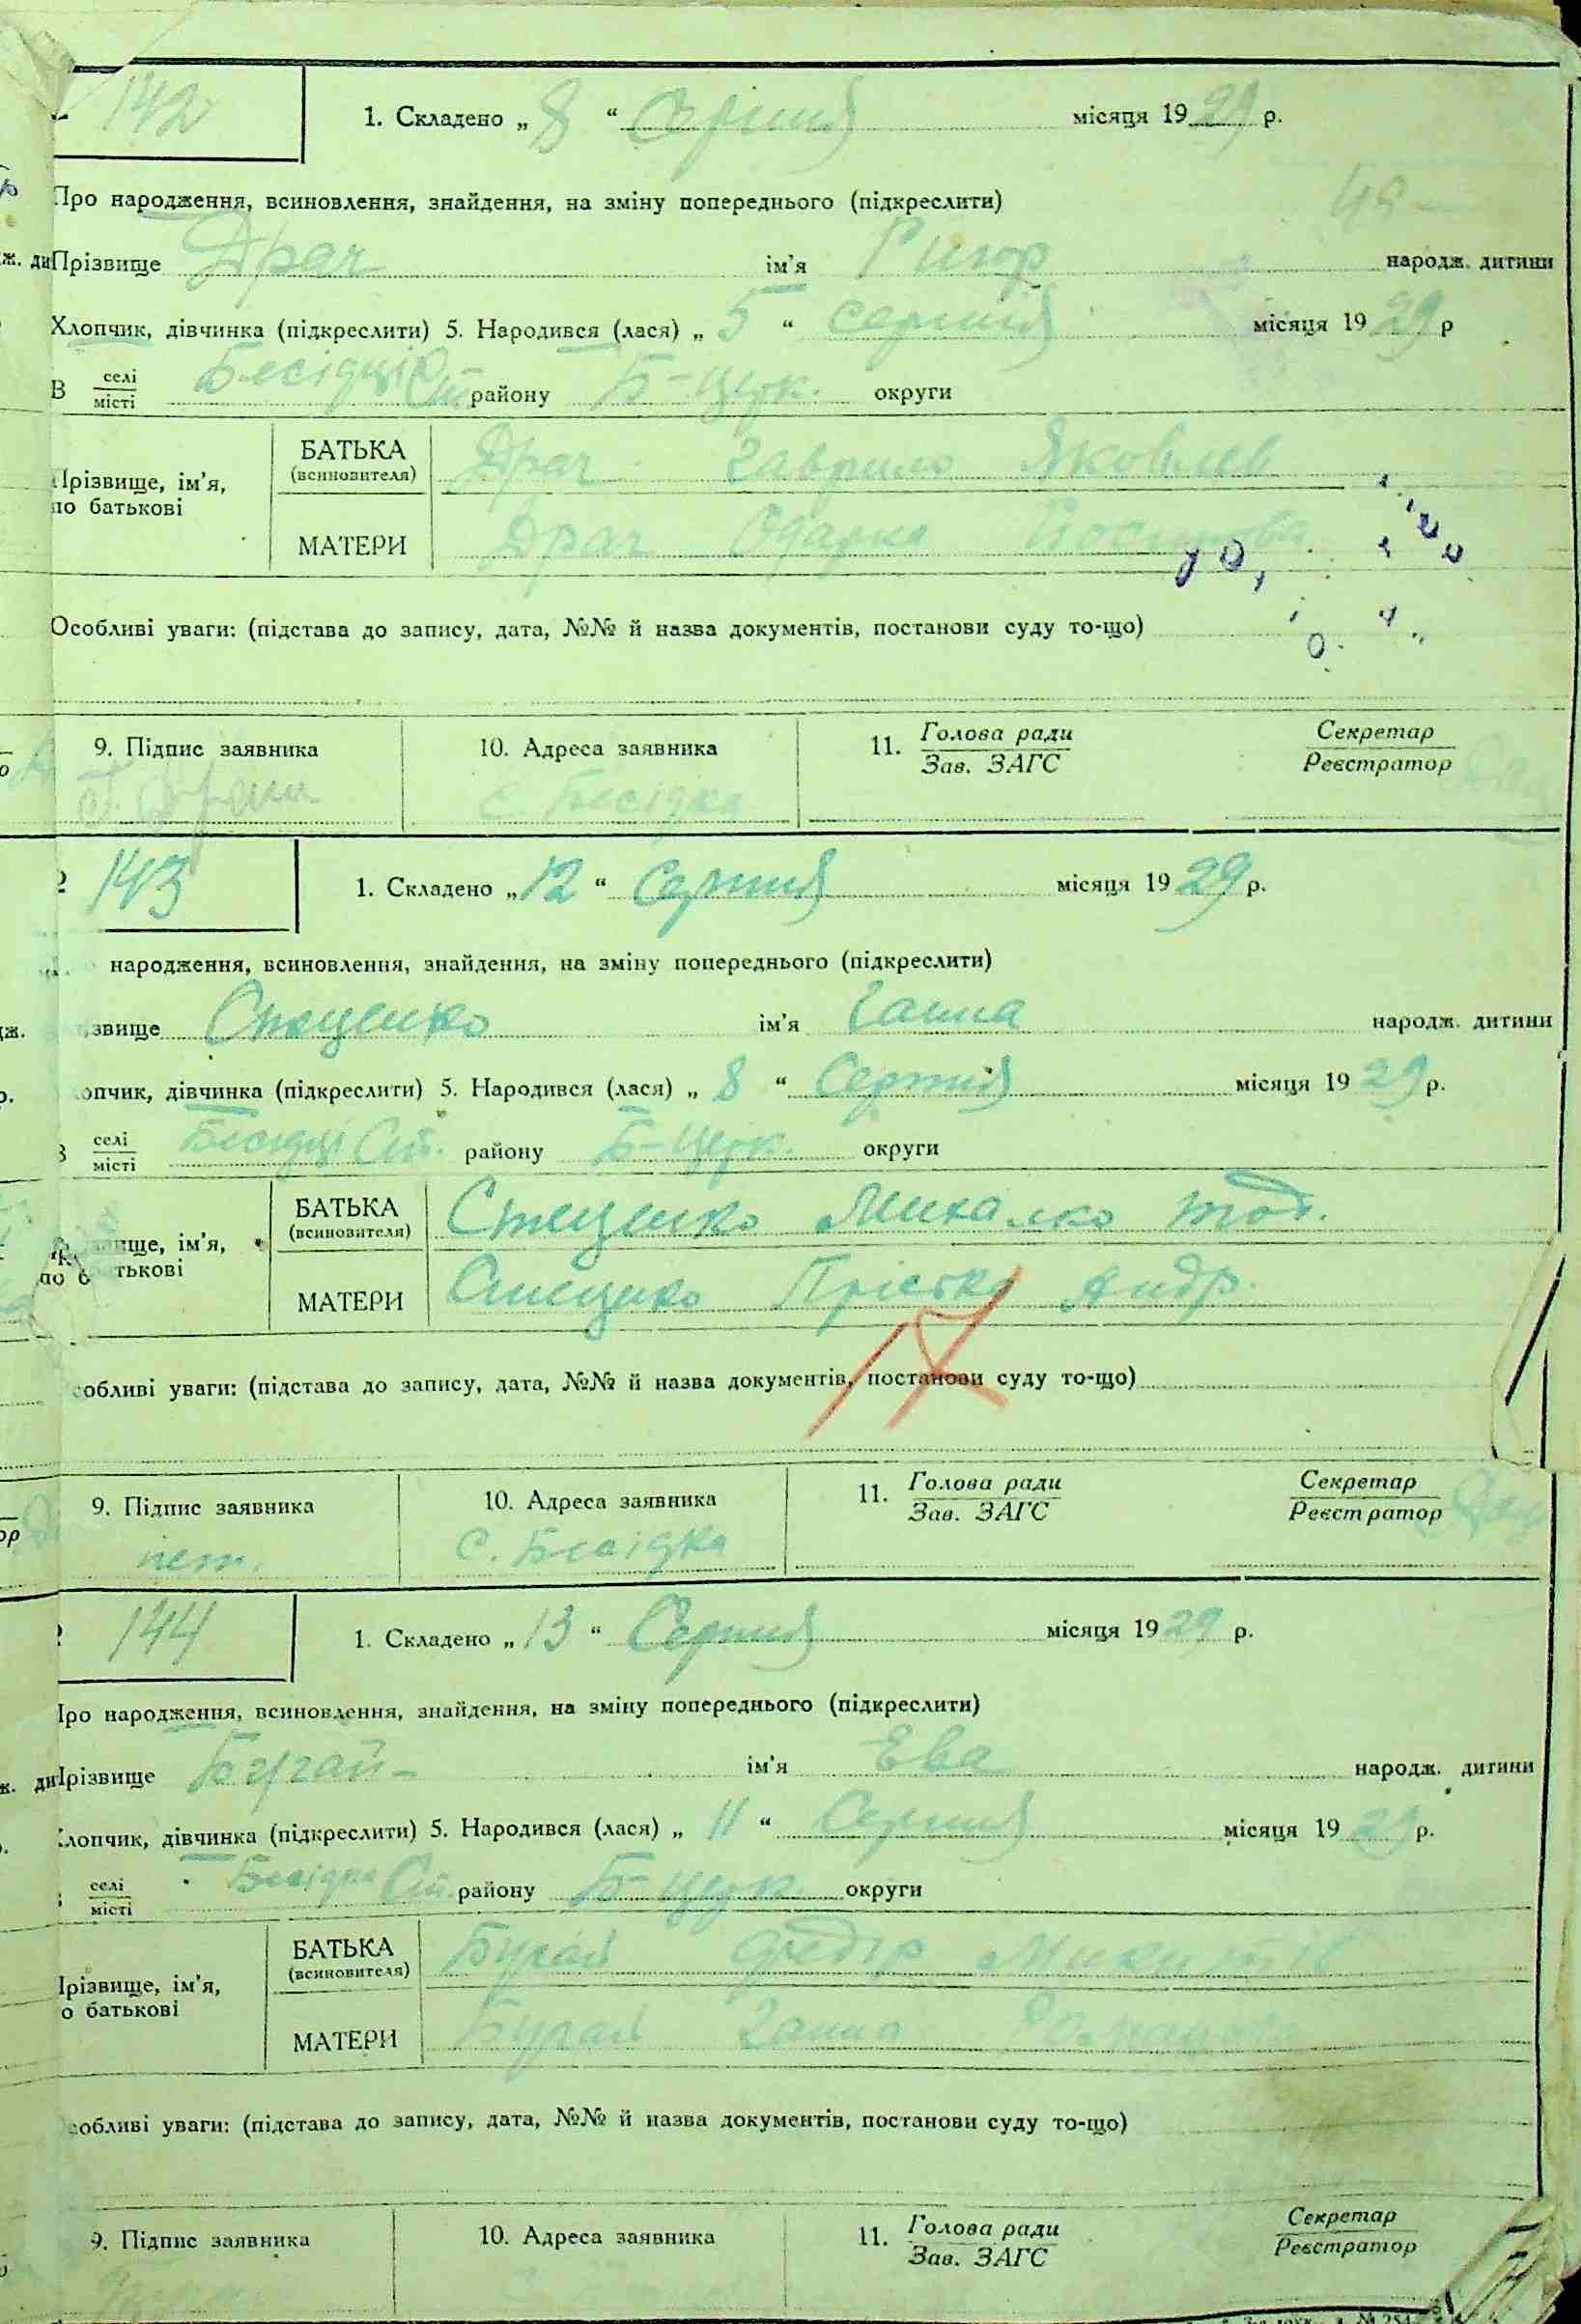 142
1. Складено „ 8 “ Серпня місяця 1929 р.
Про народження, всиновлення, знайдення, на зміну попереднього (підкреслити)
Прізвище Драч ім'я Григор народж. дитини
Хлопчик, дівчинка (підкреслити) 5. Народився (лася) „ 5 “ серпня місяця 1929 р
В селі/місті Бесідці Ст. району Б-Церк. округи
Прізвище, ім'я, по батькові
БАТЬКА (всиновителя) Драч Гаврило Яковлев
МАТЕРИ Драч Одарка
Особливі уваги: (підстава до запису, дата, №№ й назва документів, постанови суду то-що)
9. Підпис заявника
10. Адреса заявника
11. Голова ради / Зав. ЗАГС
Секретар / Реєстратор
с. Бесідка
143
1. Складено „ 12 “ Серпня місяця 1929 р.
народження, всиновлення, знайдення, на зміну попереднього (підкреслити)
звище Стеценко ім'я Ганна народж. дитини
опчик, дівчинка (підкреслити) 5. Народився (лася) „ 8 “ Серпня місяця 1929 р.
селі/місті Бесідці Ст. району Б-Церк. округи
ім'я, по батькові
БАТЬКА (всиновителя) Стеценко Михалко Тод.
МАТЕРИ Стеценко Андр.
собливі уваги: (підстава до запису, дата, №№ й назва документів, постанови суду то-що)
9. Підпис заявника
10. Адреса заявника
11. Голова ради / Зав. ЗАГС
Секретар / Реєстратор
с. Бесідка
144
1. Складено „ 13 “ Серпня місяця 1929 р.
ро народження, всиновлення, знайдення, на зміну попереднього (підкреслити)
різвище Бугай ім'я Ева народж. дитини
лопчик, дівчинка (підкреслити) 5. Народився (лася) „ 11 “ Серпня місяця 1929 р.
селі/місті Бесідка Ст. району Б-Церк. округи
різвище, ім'я,
о батькові
БАТЬКА (всиновителя) Бугай Микитів
МАТЕРИ Бугай Ганна
собливі уваги: (підстава до запису, дата, №№ й назва документів, постанови суду то-що)
9. Підпис заявника
10. Адреса заявника
11. Голова ради / Зав. ЗАГС
Секретар / Реєстратор